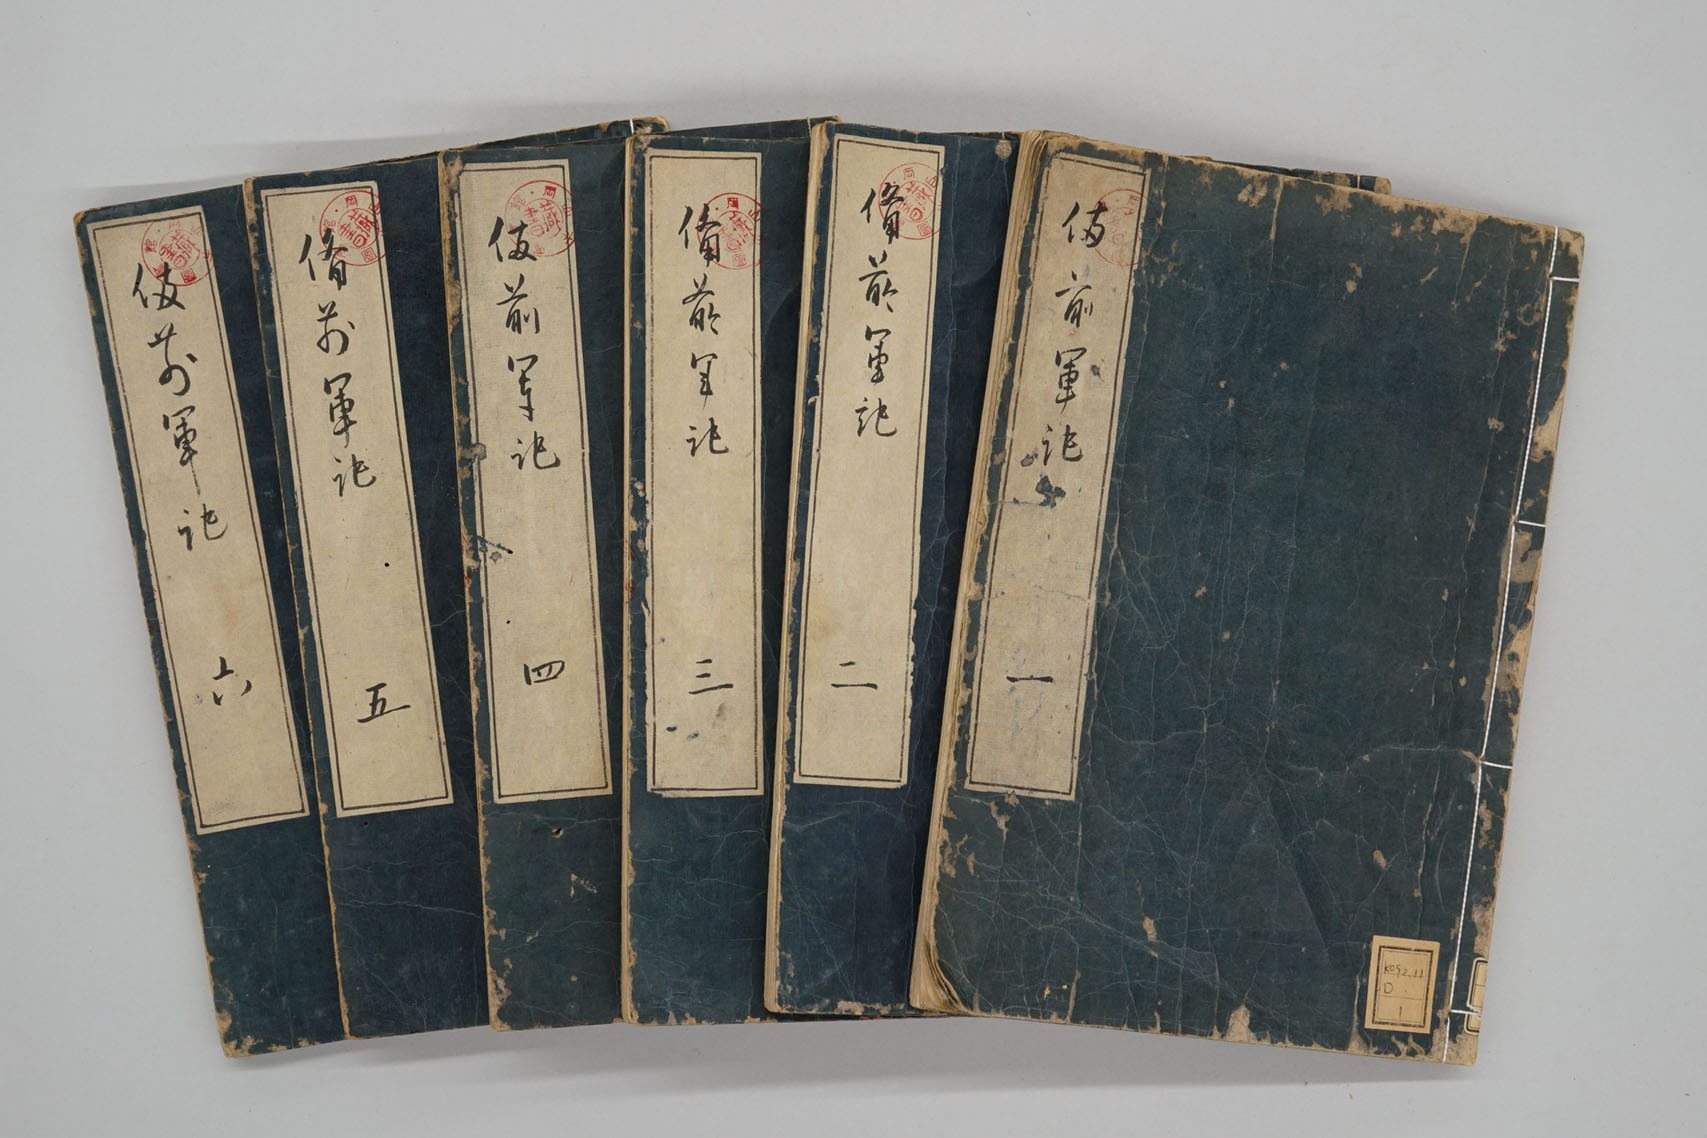 備前軍記
一
備前軍記
二
備前軍記
三
備前軍記
四
備前軍記
五
備前軍記
六
K092.11
D
1